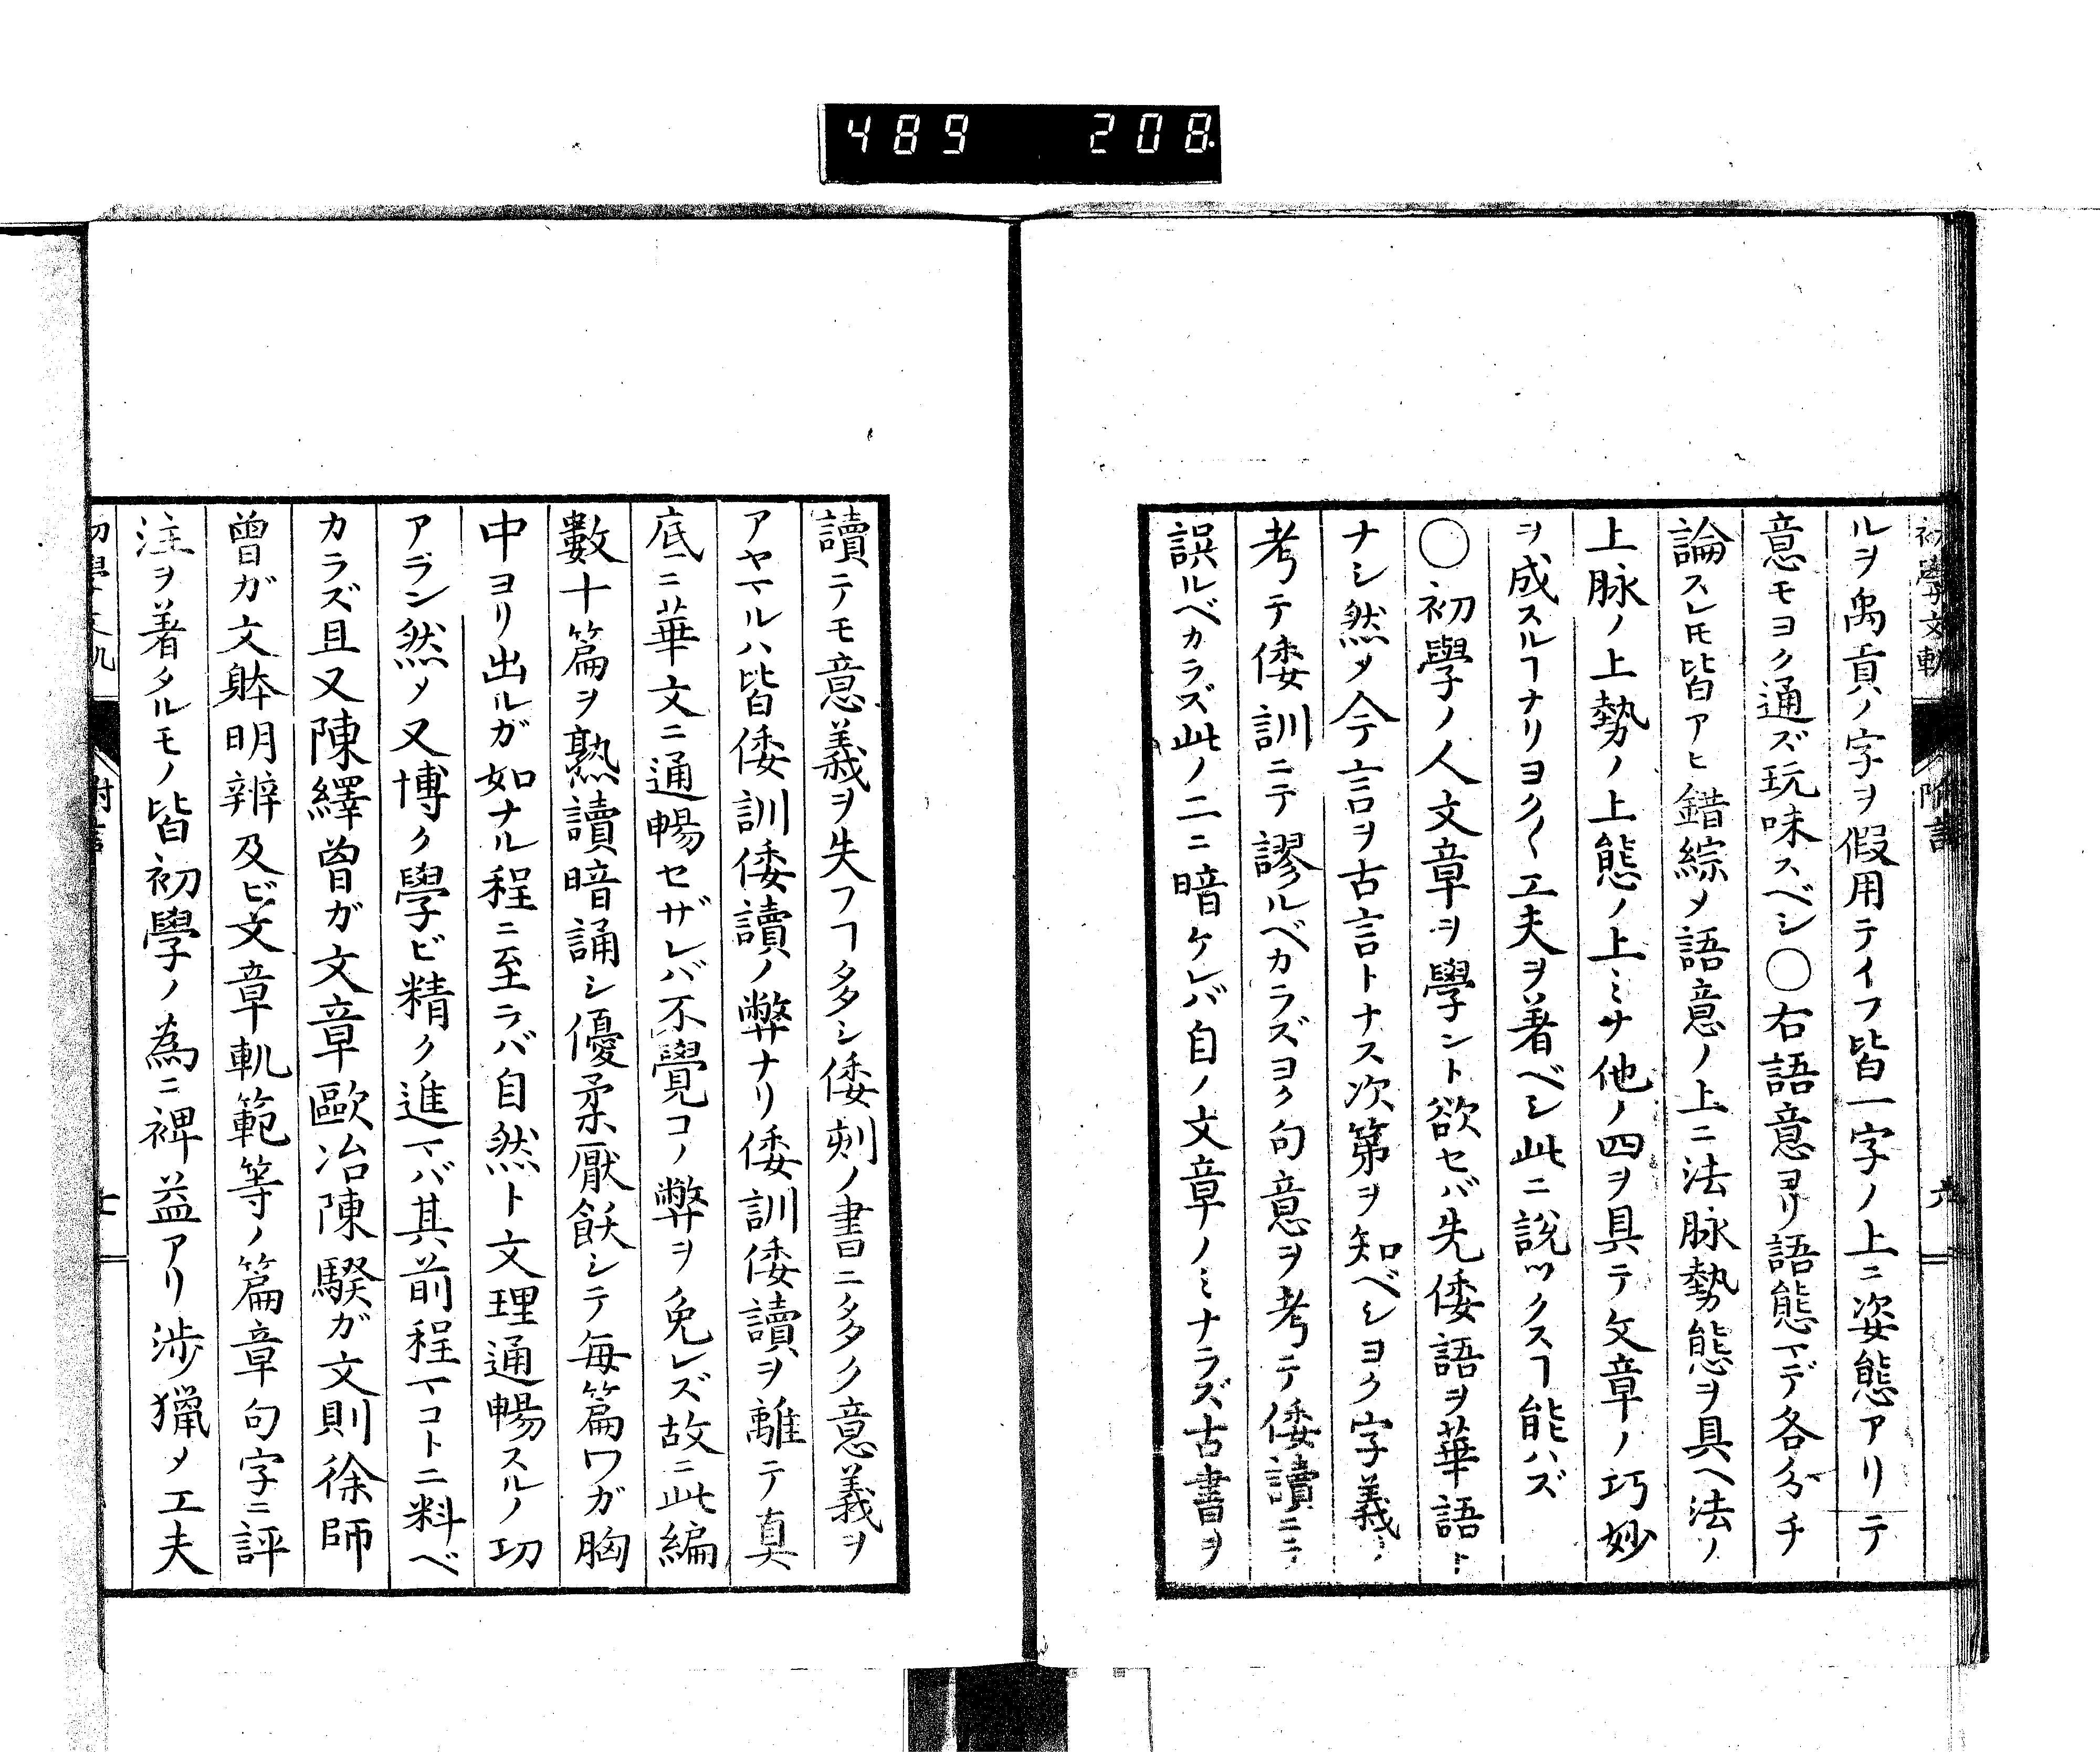 489 208
初學文軌 附言 六
ルヲ禹貢ノ字ヲ假用テイフ皆一字ノ上ニ姿態アリテ
意モヨク通ズ玩味スベシ〇右語意ヨリ語態マデ各分チ
論スレ𪜈皆アヒ錯綜メ語意ノ上ニ法脉勢態ヲ具ヘ法ノ
上脉ノ上勢ノ上態ノ上ミナ他ノ四ヲ具テ文章ノ巧妙
ヲ成スルヿナリヨク〱工夫ヲ著ベシ此ニ說ツクスヿ能ハズ
〇初學ノ人文章ヲ學ント欲セバ先倭語ヲ華語ト
ナシ然メ今テ言ヲ古言トナス次第ヲ知ベシヨク字義ヲ
考テ倭訓ニテ謬ルベカラズヨク句意ヲ考テ倭讀ニテ
誤ルベカラズ此ノ二ニ暗ケレバ自ノ文章ノミナラズ古書ヲ
讀テモ意義ヲ失フヿ多シ倭刻ノ書ニ多ク意義ヲ
アヤマルハ皆倭訓倭讀ノ弊ナリ倭訓倭讀ヲ離テ真
底ニ華文ニ通暢セザレバ不覺コノ弊ヲ免レズ故ニ此編
數十篇ヲ熟讀暗誦シ優柔厭飫シテ毎篇ワガ胸
中ヨリ出ルガ如ナル程ニ至ラバ自然ト文理通暢スルノ功
アラン然メ又博ク學ビ精ク進マバ其前程マコトニ料ベ
カラズ且又陳繹曾ガ文章歐冶陳騤ガ文則徐師
曾ガ文躰明辨及ビ文章軌範等ノ篇章句字ニ評
注ヲ著タルモノ皆初學ノ為ニ裨益アリ渉獵メ工夫
初學文軌 附言 七